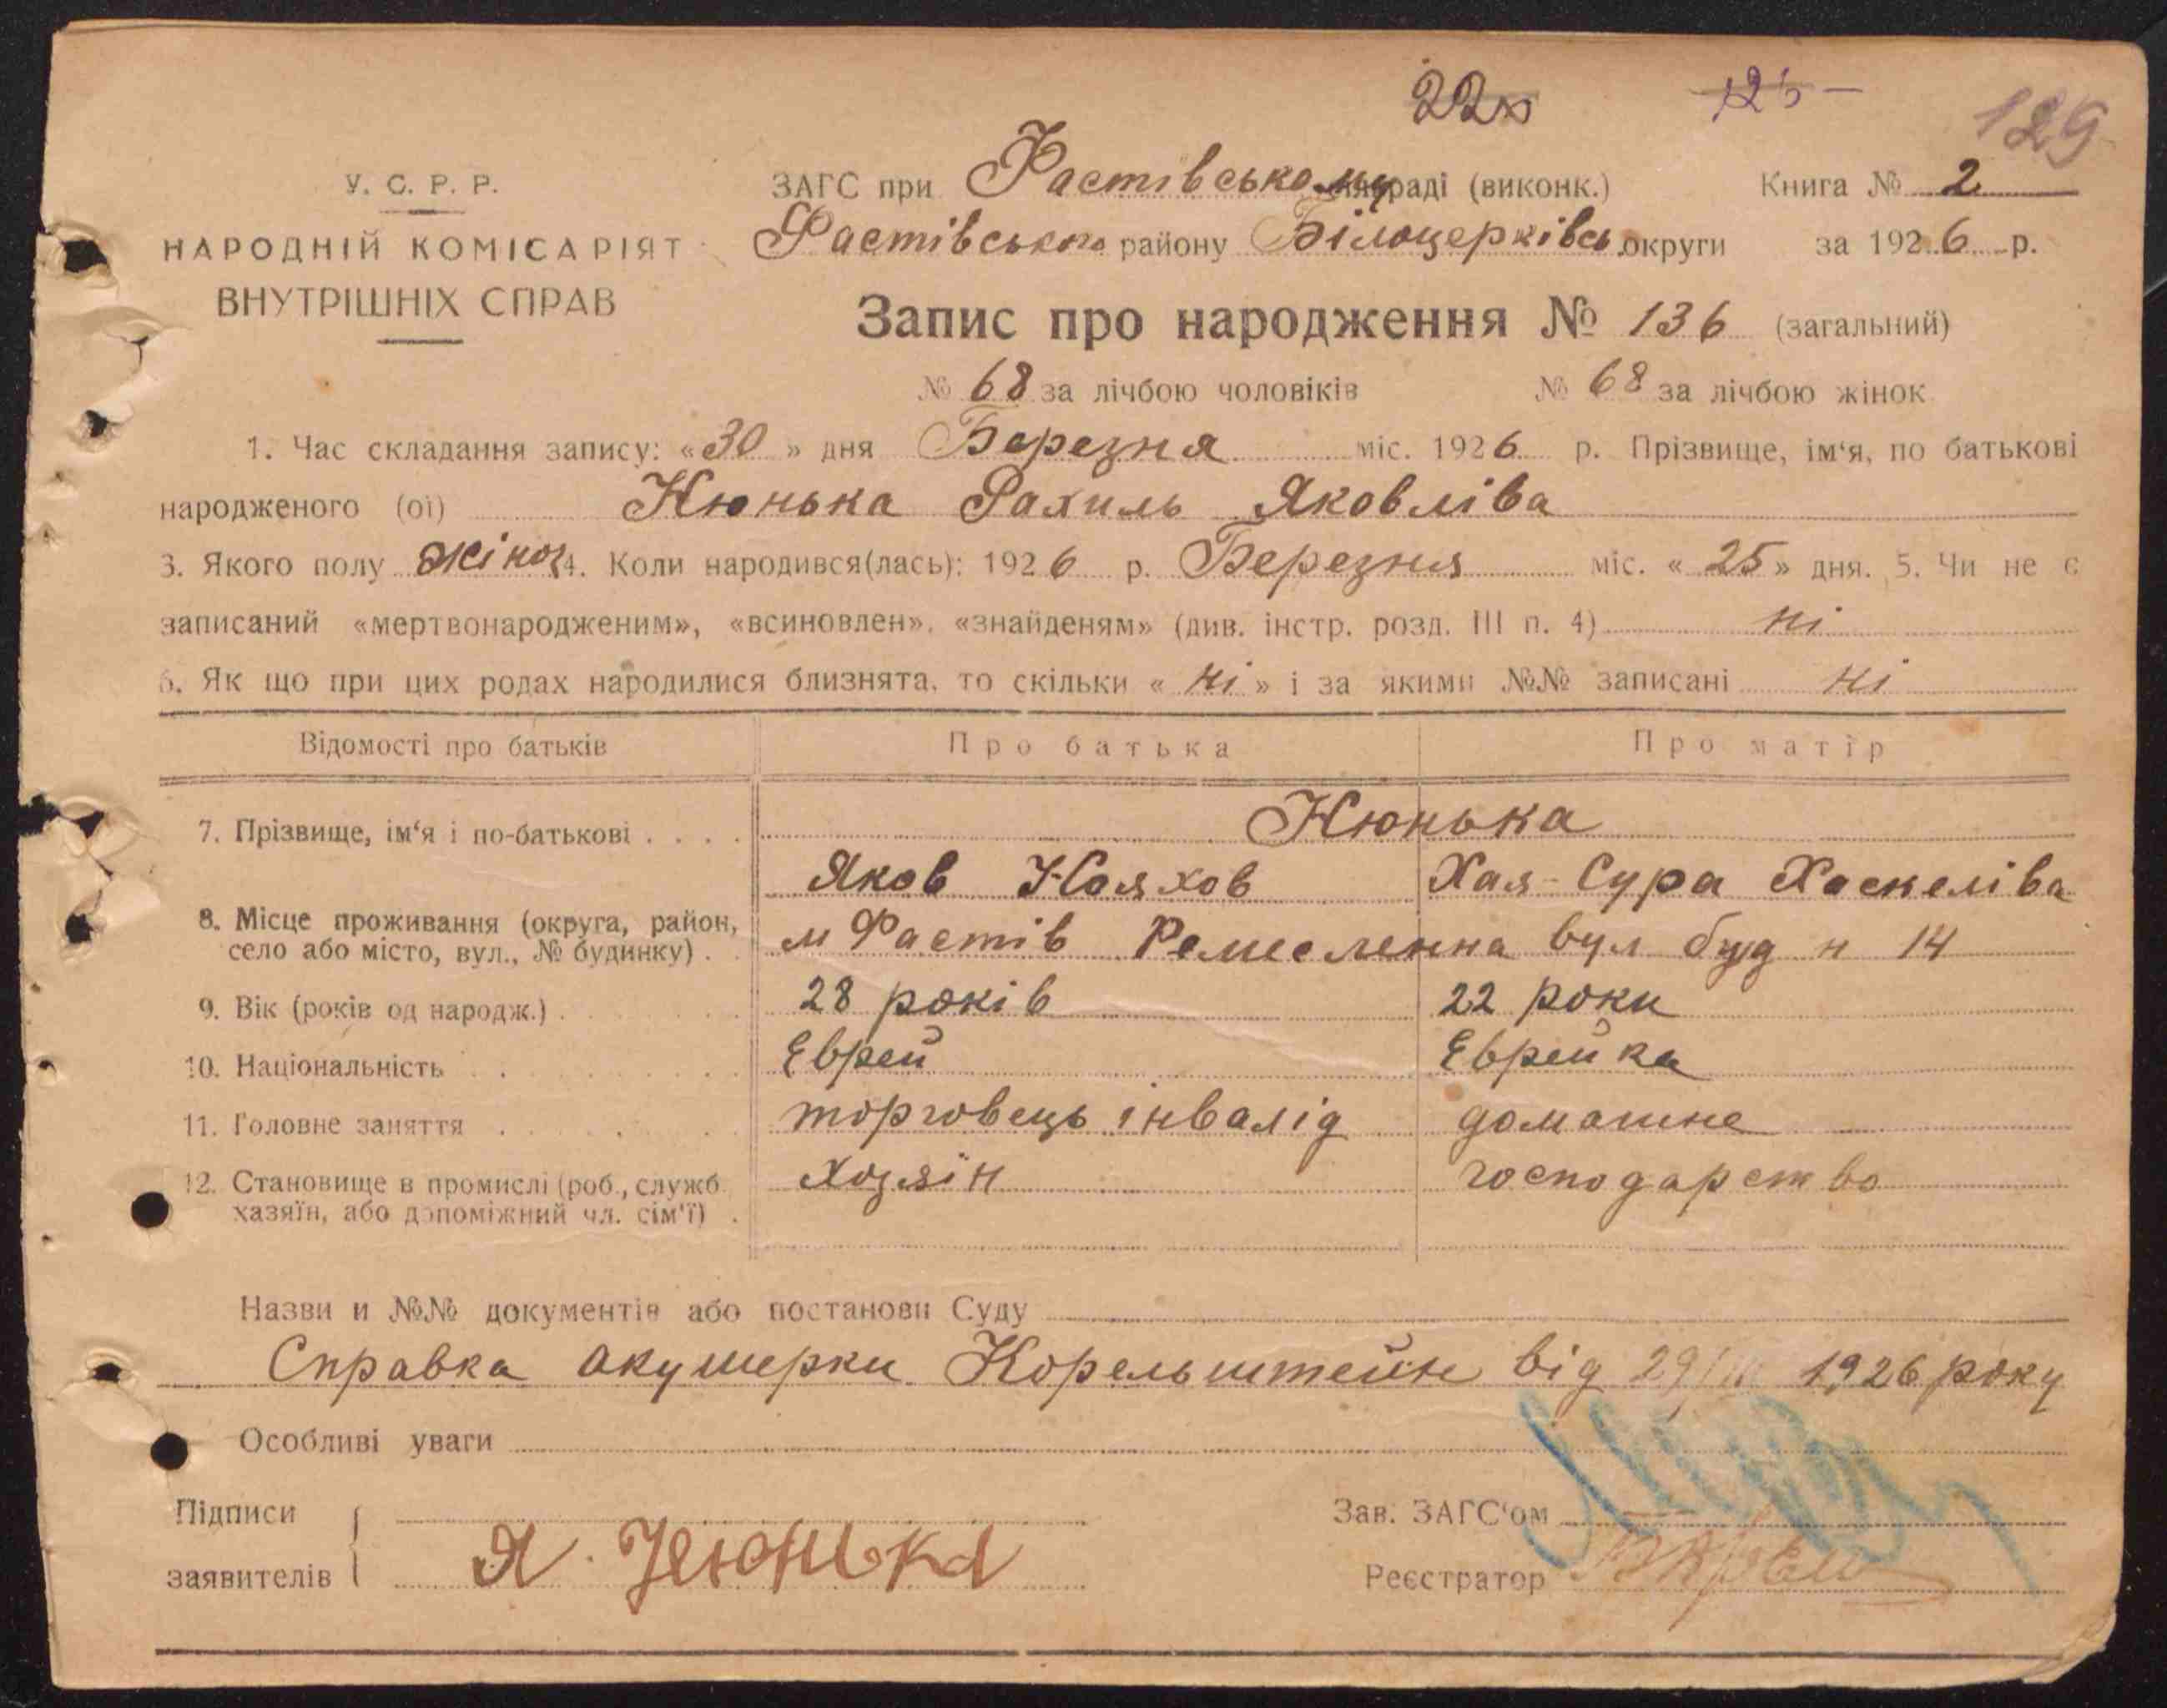 22
125
129
У. С. Р. Р.
НАРОДНІЙ КОМІСАРІЯТ
ВНУТРІШНІХ СПРАВ
ЗАГС при Фастівському раді (виконк.) Книга № 2
Фастівського району Білоцерківсь округи за 1926 р.
Запис про народження № 136 (загальний)
№ 68 за лічбою чоловіків № 68 за лічбою жінок
1. Час складання запису: «30» дня Березня міс. 1926 р. Прізвище, ім'я, по батькові
народженого (ої) Нюнька Рахиль Яковліва
3. Якого полу жіноч 4. Коли народився(лась): 1926 р. Березня міс. «25» дня. 5. Чи не є
записаний «мертвонародженим», «всиновлен», «знайденям» (див. інстр. розд. III п. 4) ні
6. Як що при цих родах народилися близнята, то скільки «ні» і за якими №№ записані ні
Відомості про батьків Про батька Про матір
7. Прізвище, ім'я і по-батькові . . . . Нюнька
Яков Нояхов Хая-Сура Хаскеліва
8. Місце проживання (округа, район,
село або місто, вул., № будинку) . . м Фастів Ремеслєнна вул буд н 14
9. Вік (років од народж.) . 28 років 22 роки
10. Національність . . Еврей Еврейка
11. Головне заняття . . торговець інвалід домашне
12. Становище в промислі (роб., служб.
хазяїн, або допоміжний чл. сім'ї) . Хозяїн господарство
Назви и №№ документів або постанови Суду
Справка акушерки Корельштейн від 29/III 1926 року
Особливі уваги
Підписи
заявителів Я. Нюнька
Зав. ЗАГС'ом
Реєстратор